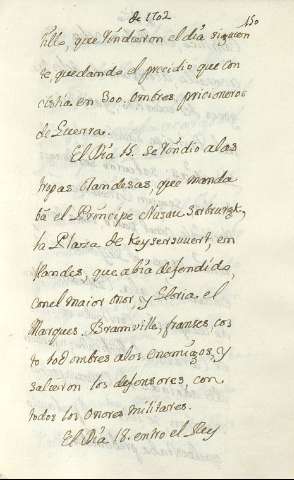 de 1702
150
tillo, que Rindieron el dia siguien
te quedando el precidio que con
cistia en 300. ombres, pricioneros
de Guerra.
El Dia 15. se Rindio a las
tropas olandesas, que manda
ba el Principe Nasau Sarburgk,
la Plaza de Keysersvuert, en
flandes, que abia defendido,
con el maior onor, y Gloria, el
Marques, Bramville, franses, cos
to 108 ombres a los enemigos, y
salieron los defensores, con
todos los onores militares.
El Dia 18. entro el Rey